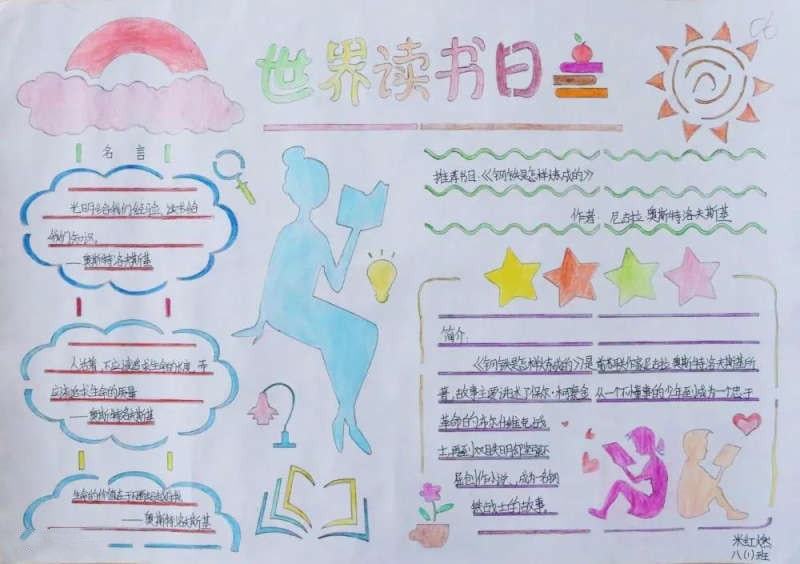 世界读书日
名言
生活给我们经验，读书给
我们知识。
——奥斯特洛夫斯基
推荐书目:《钢铁是怎样炼成的》
作者 尼古拉·奥斯特洛夫斯基
人活着，不应该追求生命的长度，而
应该追求生命的质量
——奥斯特洛夫斯基
——奥斯特洛夫斯基
简介:
《钢铁是怎样炼成的》是前苏联作家尼古拉·奥斯特洛夫斯基所
著，故事主要讲述了保尔·柯察金从一个不懂事的少年到成为一个忠于
革命的布尔什维克战
士,再到双目失明却坚强不
屈创作小说，成为一名钢
铁战士的故事。
八(1)班